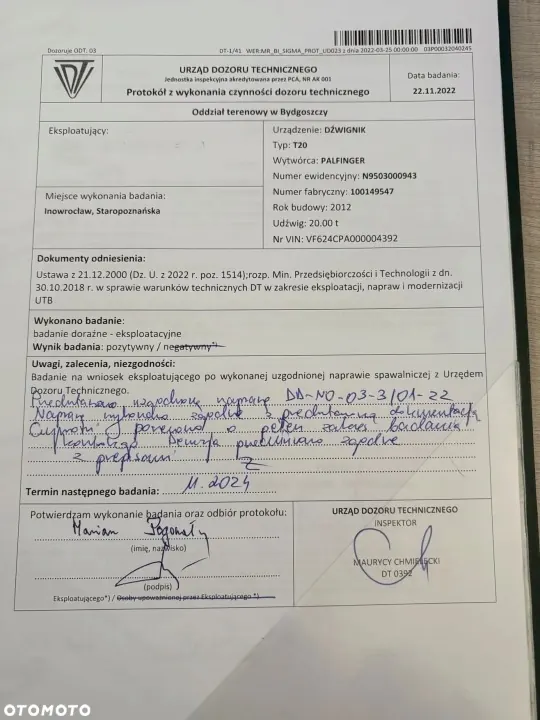 Dozoruje ODT. 03
DT-1/41 WER:MR_BI_SIGMA_PROT_UD023 z dnia 2022-03-25 00:00:00 03P00032040245
URZĄD DOZORU TECHNICZNEGO
Jednostka inspekcyjna akredytowana przez PCA, NR AK 001
Protokół z wykonania czynności dozoru technicznego
Data badania:
22.11.2022
Oddział terenowy w Bydgoszczy
Eksploatujący:
Miejsce wykonania badania:
Inowrocław, Staropoznańska
Urządzenie: DŹWIGNIK
Typ: T20
Wytwórca: PALFINGER
Numer ewidencyjny: N9503000943
Numer fabryczny: 100149547
Rok budowy: 2012
Udźwig: 20.00 t
Nr VIN: VF624CPA000004392
Dokumenty odniesienia:
Ustawa z 21.12.2000 (Dz. U. z 2022 r. poz. 1514);rozp. Min. Przedsiębiorczości i Technologii z dn.
30.10.2018 r. w sprawie warunków technicznych DT w zakresie eksploatacji, napraw i modernizacji
UTB
Wykonano badanie:
badanie doraźne - eksploatacyjne
Wynik badania: pozytywny / negatywny*)
Uwagi, zalecenia, niezgodności:
Badanie na wniosek eksploatującego po wykonanej uzgodnionej naprawie spawalniczej z Urzędem
Dozoru Technicznego.
Przedstawiono uzgodnioną naprawę DD-NO-03-3/01-22
Naprawę wykonano zgodnie z przedstawioną dokumentacją
Czynności poszerzono o pełen zakres badania
kontrolnego
z przepisami
Termin następnego badania: 11.2024
Potwierdzam wykonanie badania oraz odbiór protokołu:
Marian
(imię, nazwisko)
(podpis)
Eksploatującego*) / Osoby upoważnionej przez Eksploatującego *)
URZĄD DOZORU TECHNICZNEGO
INSPEKTOR
MAURYCY CHMIELECKI
DT 0392
OTOMOTO